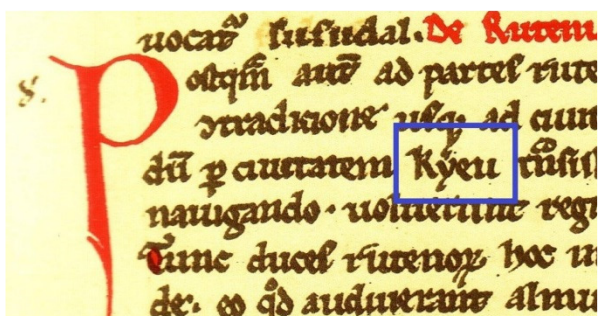 uocat᷑ susudal. De Ruteni
8. Postqm̄ aut̄ ad partes rute
ꝯtradicione usqꝫ ad ciui
dū ꝑ ciuitatem Kyeu
nauigando. uoluerunt reg
Tunc duces rutenoꝝ hoc in
de. eo qd̄ audiuerant almu